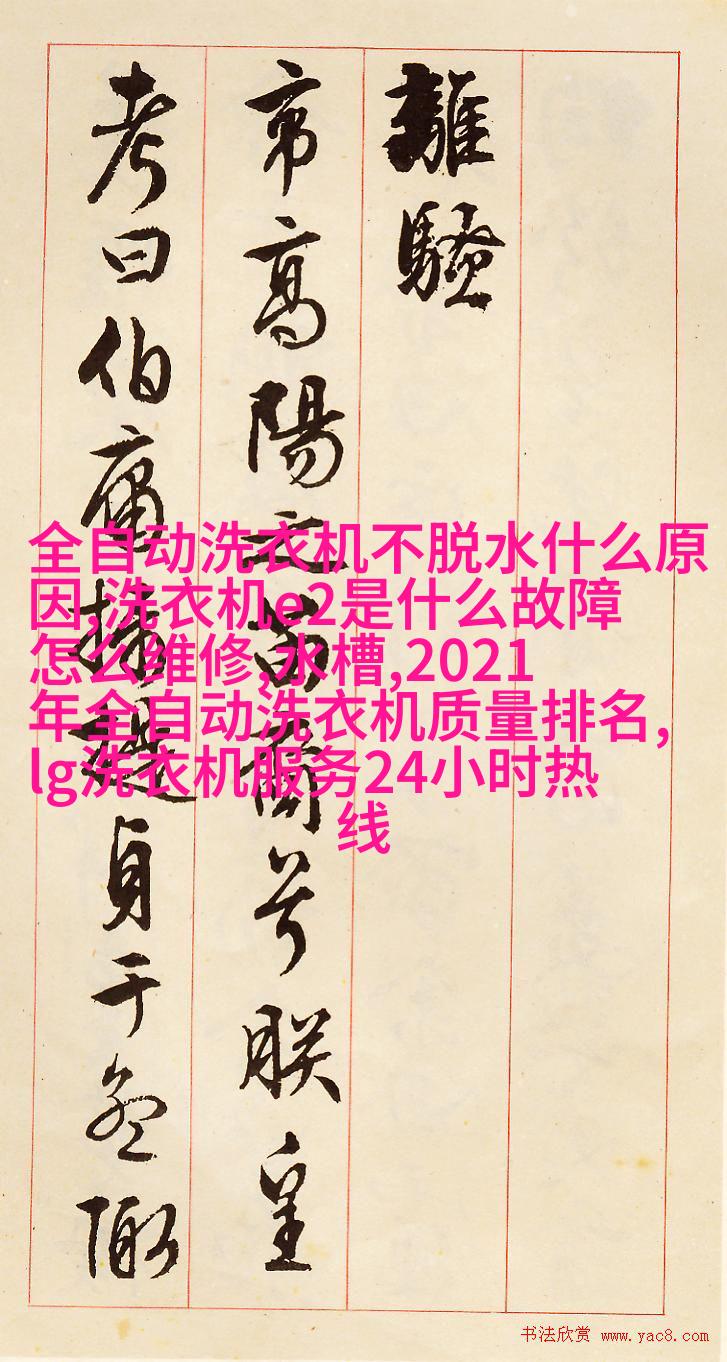 離騷
帝高陽之苗裔兮朕皇
考曰伯庸攝提貞于孟陬
全自动洗衣机不脱水什么原
因,洗衣机e2是什么故障
怎么维修,水槽,2021
年全自动洗衣机质量排名,
lg洗衣机服务24小时热
线
书法欣赏 www.yac8.com